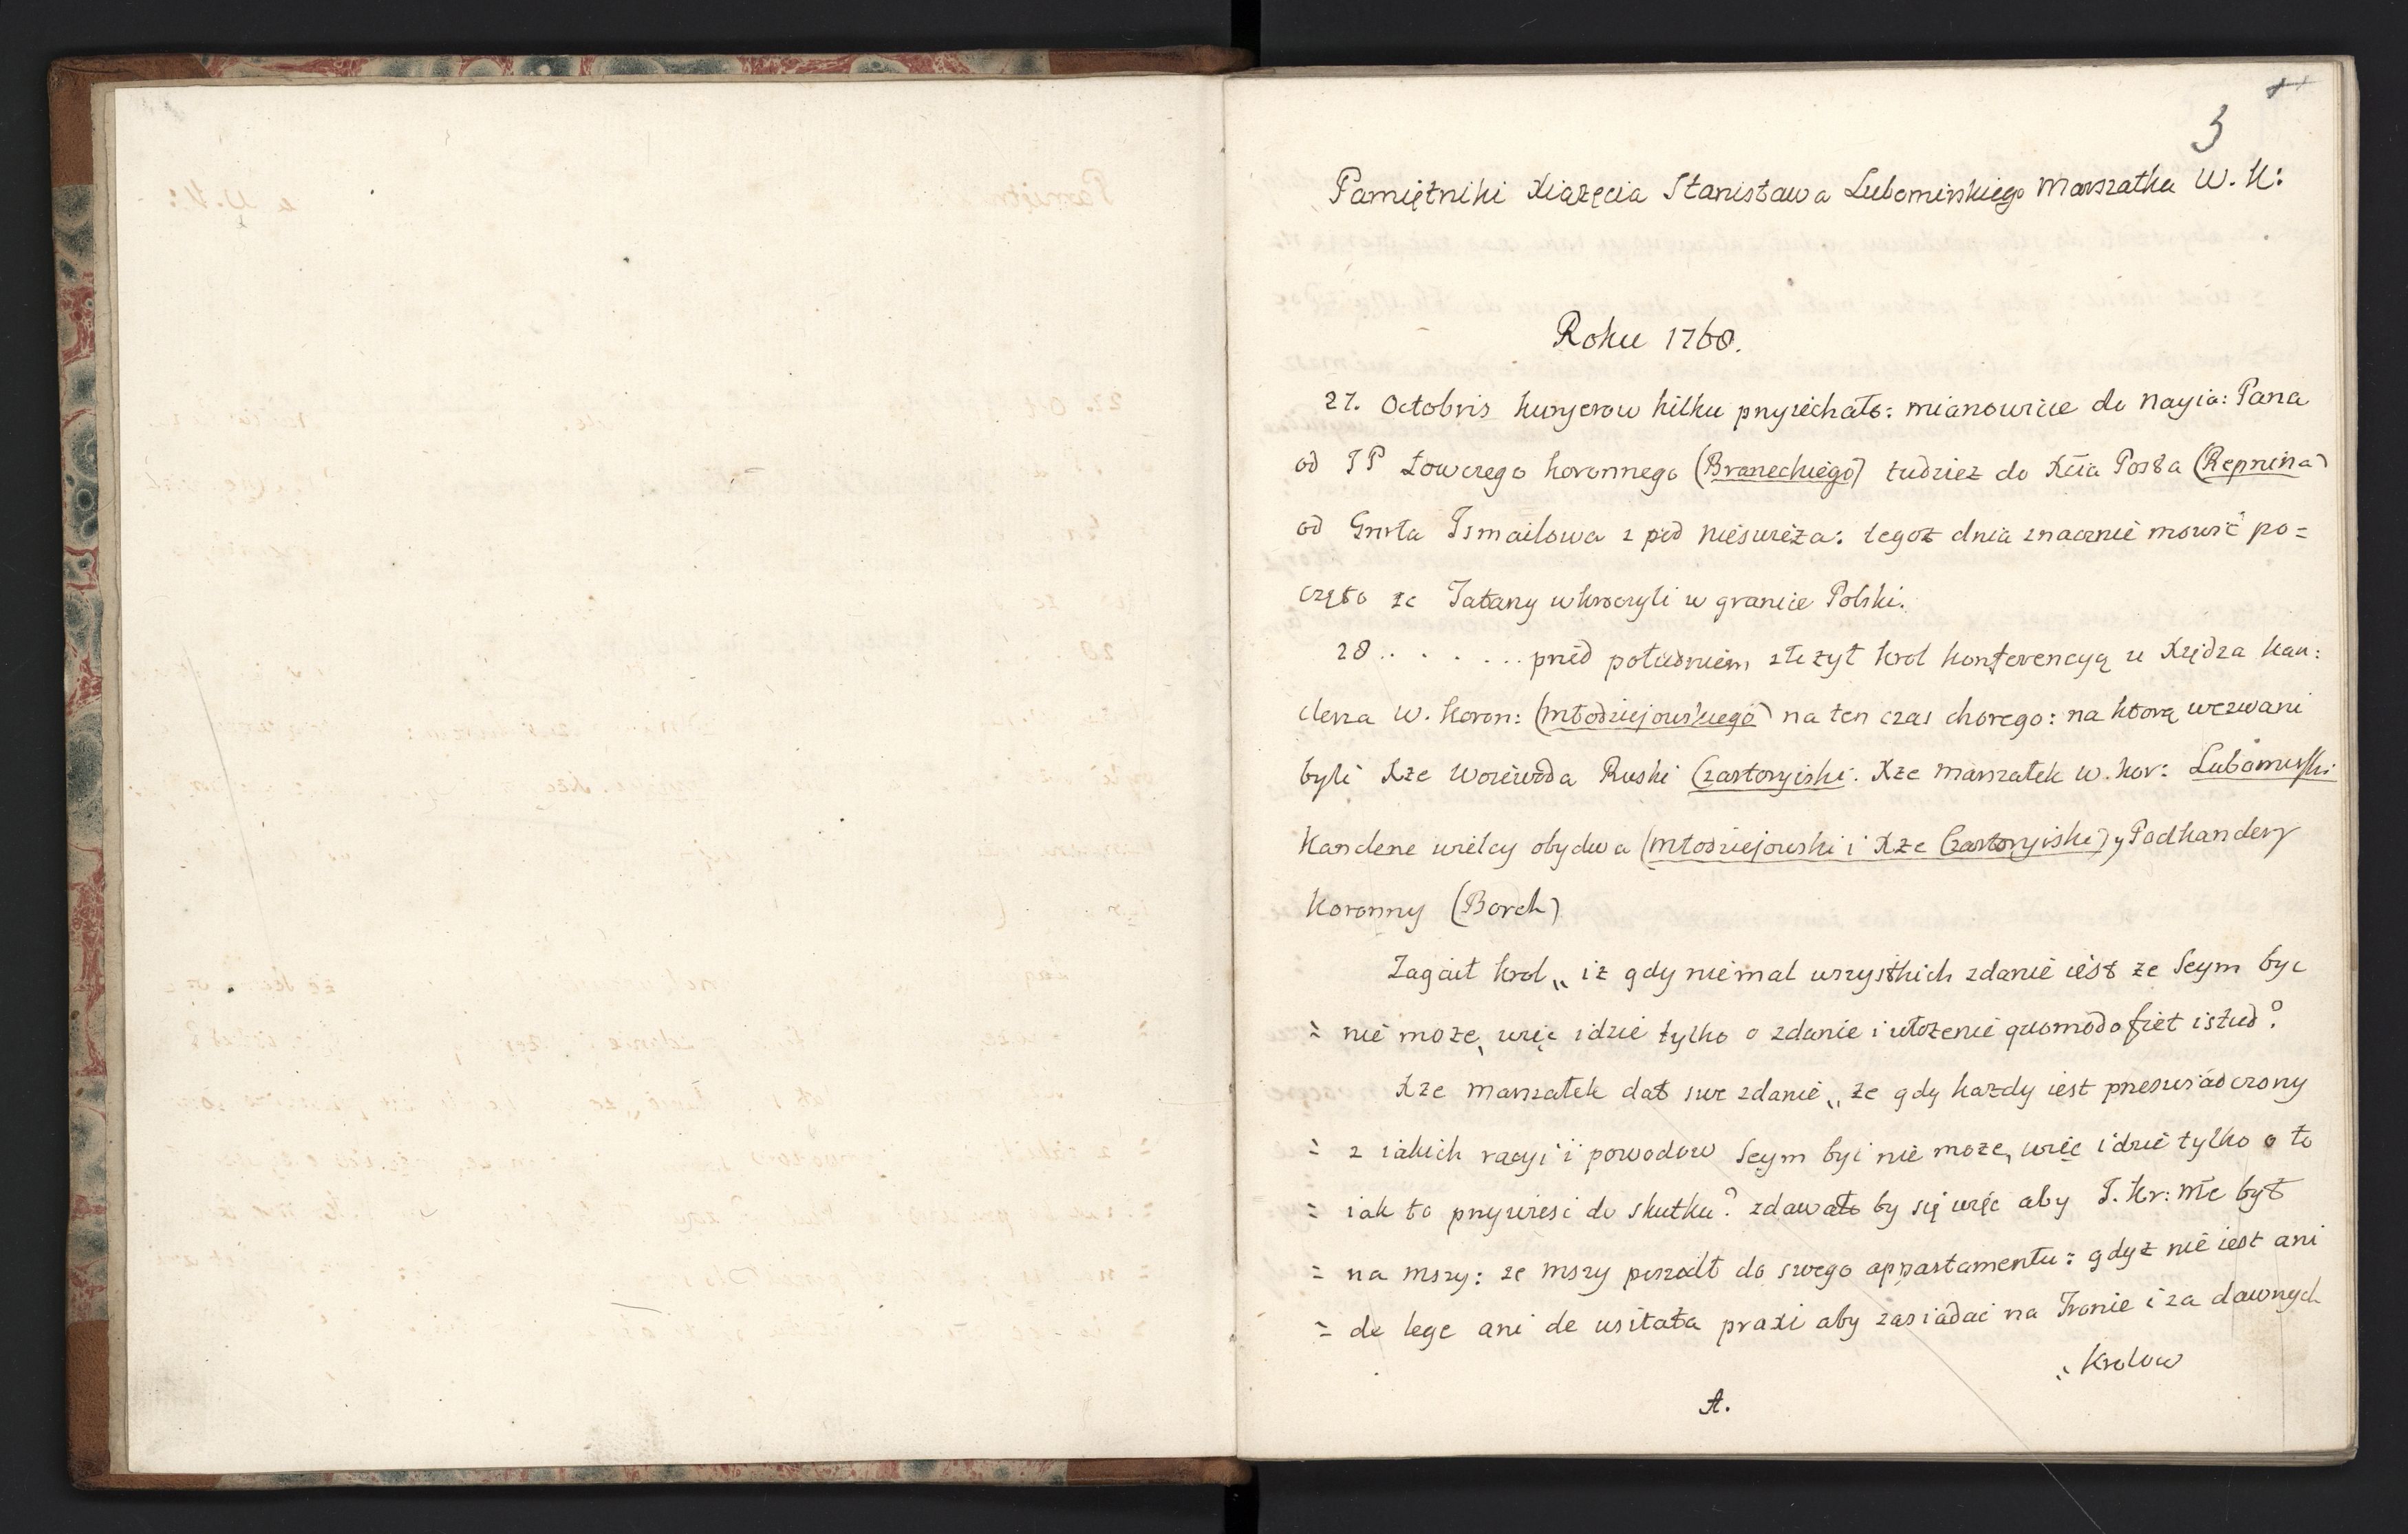 3
Pamiętniki Xiążęcia Stanisława Lubomirskiego Marszałka W. K:
Roku 1768.
27. Octobris kuryerow kilku przyiechało: mianowicie do Nayia: Pana
od JP Łowczego koronnego (Braneckiego) tudziez do Xcia Posła (Repnina)
od Gnrła Ismailowa z pod Nieswieża: tegoż dnia znacznie mowić po=
częto że Tatarzy wkroczyli w granice Polski.
28 . . . . . . . przed południem złożył krol konferencyą u Xiędza Kan:
clerza W. Koron: (Młodziejowskiego) na ten czas chorego: na ktorą wezwani
byli Xże Woiewoda Ruski Czartoryiski. Xże Marszałek w. kor: Lubomirski
Kanclerze wielcy obydwa (Młodziejowski i Xże Czartoryiski) y Podkanclerzy
Koronny (Borch)
Zagaił krol „ iż gdy niemal wszystkich zdanie iest że Seym byc
= nie może, więc idzie tylko o zdanie i ułożenie quomodo fiet istud?
Xże Marszałek dał swe zdanie „ że gdy każdy iest przeswiadczony
= z iakich racyi i powodow Seym byi nie może, więc idzie tylko o to
= iak to przywiesć do skutku? zdawało by się więc aby J. Kr: Mć był
= na mszy: ze mszy poszedł do swego appartamentu: gdyż nie iest ani
= de lege ani de usitata praxi aby zasiadać na Tronie i za dawnych
„ Krolow
A.